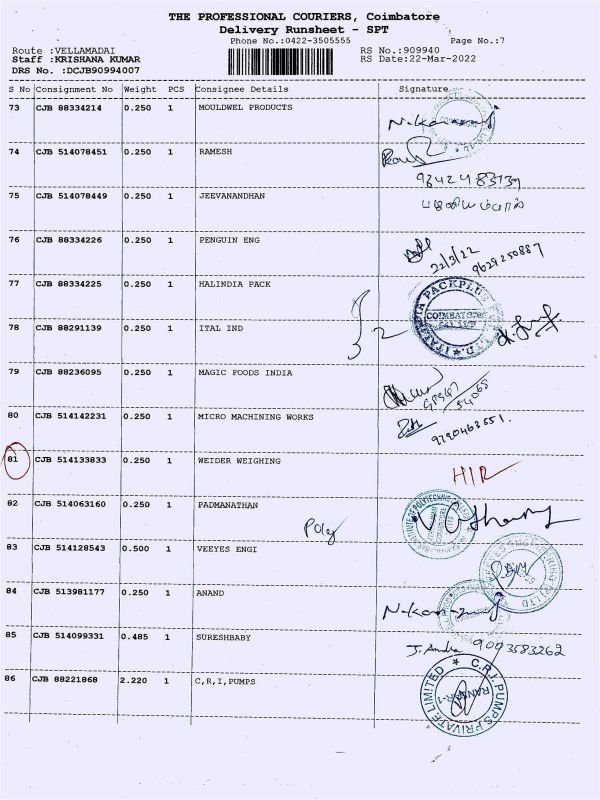 THE PROFESSIONAL COURIERS, Coimbatore
Delivery Runsheet - SPT
Phone No.:0422-3505555 Page No.:7
Route :VELLAMADAI RS No.:909940
Staff :KRISHANA KUMAR RS Date:22-Mar-2022
DRS No. :DCJB90994007
S No Consignment No Weight PCS Consignee Details Signature
73 CJB 88334214 0.250 1 MOULDWEL PRODUCTS
74 CJB 514078451 0.250 1 RAMESH
75 CJB 514078449 0.250 1 JEEVANANDHAN
76 CJB 88334226 0.250 1 PENGUIN ENG
22/3/22 9629250887
77 CJB 88334225 0.250 1 HALINDIA PACK
78 CJB 88291139 0.250 1 ITAL IND
2
79 CJB 88236095 0.250 1 MAGIC FOODS INDIA
80 CJB 514142231 0.250 1 MICRO MACHINING WORKS
9790463551.
81 CJB 514133833 0.250 1 WEIDER WEIGHING
H/R
82 CJB 514063160 0.250 1 PADMANATHAN
Poly
83 CJB 514128543 0.500 1 VEEYES ENGI
84 CJB 513981177 0.250 1 ANAND
85 CJB 514099331 0.485 1 SURESHBABY
9003583262
86 CJB 88221868 2.220 1 C,R,I,PUMPS
C.R.I.PUMPS PRIVATE LIMITED